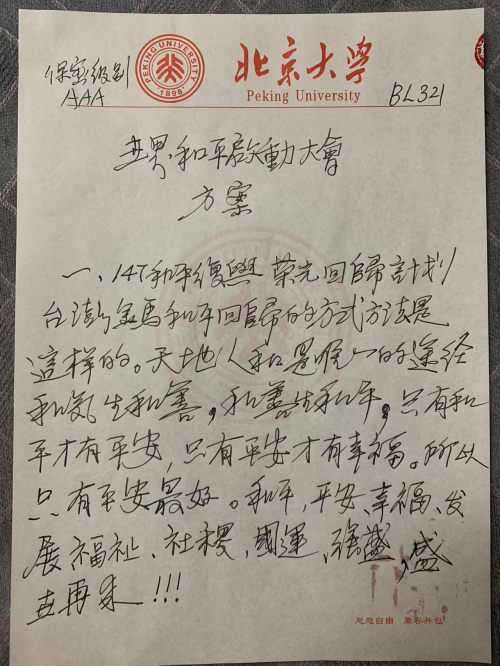 保密级别
AAA
PEKING UNIVERSITY
1898
北京大学
Peking University
BL321
世界和平啟動大會
方案
一、147和平復興 榮光回歸計划
台澎金馬和平回歸的方式方法是
這样的。天地人和是唯一的途经
和氣生和善，和善生和平，只有和
平才有平安，只有平安才有幸福。所以
只有平安最好。和平，平安、幸福、发
展、福祉、社稷，國運，强盛，盛
世再来！！！
思想自由 兼容并包